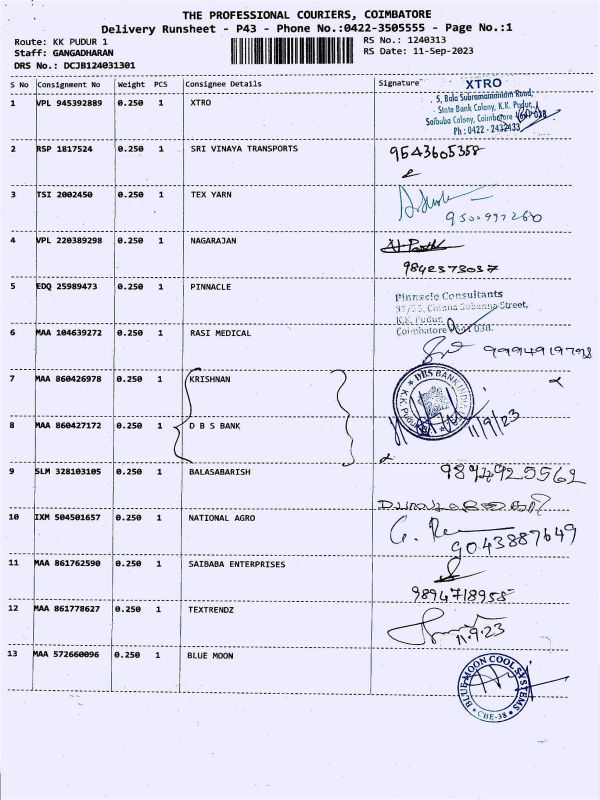 THE PROFESSIONAL COURIERS, COIMBATORE
Delivery Runsheet - P43 - Phone No.:0422-3505555 - Page No.:1
Route: KK PUDUR 1
RS No.: 1240313
Staff: GANGADHARAN
RS Date: 11-Sep-2023
DRS No.: DCJB124031301
S No Consignment No Weight PCS Consignee Details Signature
1 VPL 945392889 0.250 1 XTRO
XTRO
5, Bala Subramaniam Road,
State Bank Colony, K.K. Pudur,
Saibaba Colony, Coimbatore
Ph : 0422 - 2432433
2 RSP 1817524 0.250 1 SRI VINAYA TRANSPORTS
9543605358
3 TSI 2002450 0.250 1 TEX YARN
9500997260
4 VPL 220389298 0.250 1 NAGARAJAN
9842373037
5 EDQ 25989473 0.250 1 PINNACLE
Pinnacle Consultants
Street,
K.K. Pudur,
Coimbatore
6 MAA 104639272 0.250 1 RASI MEDICAL
7 MAA 860426978 0.250 1 KRISHNAN
DBS BANK
K.K. PUDUR
11/9/23
8 MAA 860427172 0.250 1 D B S BANK
9 SLM 328103105 0.250 1 BALASABARISH
10 IXM 504501657 0.250 1 NATIONAL AGRO
9043887649
11 MAA 861762590 0.250 1 SAIBABA ENTERPRISES
9894718958
12 MAA 861778627 0.250 1 TEXTRENDZ
11.9.23
13 MAA 572660096 0.250 1 BLUE MOON
BLUE MOON COOL SYSTEMS
CBE-38